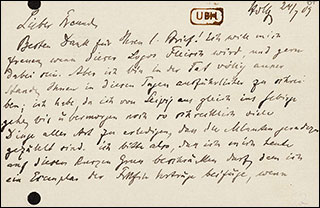 UBH
Lieber Freund,
Besten Dank für Ihren l. Brief! Ich will mich
freuen wenn dieser Logos Fleisch wird, und gern
dabei sein. Aber ich bin in der Tat völlig ausser
Stande Ihnen in diesen Tagen ausführlicher zu schrei-
ben; ich habe da ich von Leipzig aus gleich ins
gehe, bis übermorgen noch so schrecklich viele
Dinge aller Art zu erledigen, dass die Minuten
gezählt sind. Ich bitte also, dass ich mich heute
auf diesen kurzen Gruss beschränken darf, dem ich
ein Exemplar der Vorträge beifüge, wenn